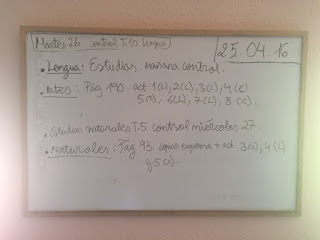 Martes 26 control T.10 Lengua
25.04.16
• Lengua: Estudiar. Mañana control.
• Mates: Pág 190. act 1(c), 2(c), 3(c), 4(c)
5(c), 6(L), 7(L), 8(c).
• Estudiar naturales T.5 control miércoles 27
• Naturales: Pág 93 copiar esquema + act 3(c), 4(L)
y 5(c).